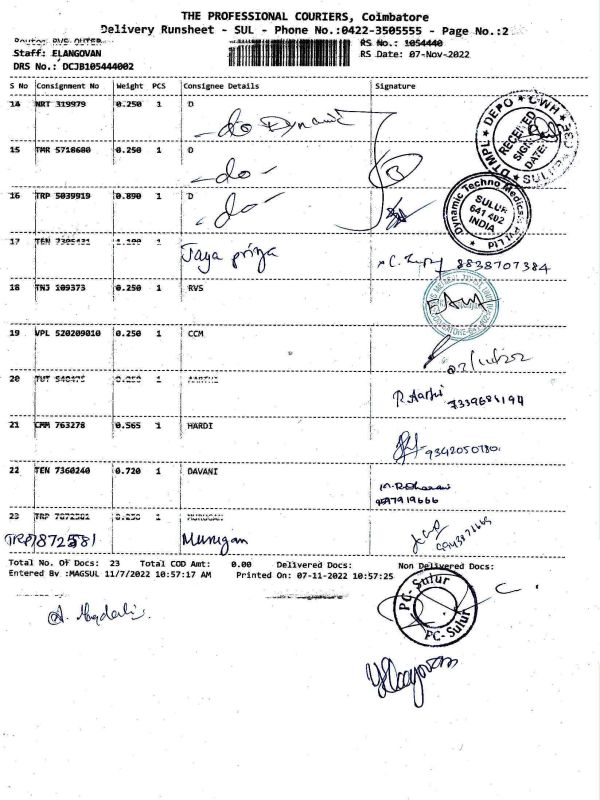 THE PROFESSIONAL COURIERS, Coimbatore
Delivery Runsheet - SUL - Phone No.:0422-3505555 - Page No.:2
Route: RVS OUTER
RS No.: 1054440
Staff: ELANGOVAN
RS Date: 07-Nov-2022
DRS No.: DCJB105444002
S No Consignment No Weight PCS Consignee Details Signature
14 NRT 319979 0.250 1 D
-do Dynamic
15 TMR 5718680 0.250 1 D
-do-
16 TRP 5039919 0.890 1 D
-do-
DTMPL DEPO CWH
RECEIVED
SIGN
DATE:
SULUR
Dynamic Techno Medicals Pvt Ltd
SULUR
641 402
INDIA
17 TEN 7305431 1.100 1
Jaya priya
8838707384
18 TNJ 109373 0.250 1 RVS
19 VPL 520209010 0.250 1 CCM
07/11/22
20 TUT 540475 0.250 1 AARTHI
R. Aarthi
7339681194
21 CMM 763278 0.565 1 HARDI
22 TEN 7360240 0.720 1 DAVANI
23 TRP 7872581 0.250 1 MURUGAN
TRP7872581 Murugan
Total No. Of Docs: 23 Total COD Amt: 0.00 Delivered Docs: Non Delivered Docs:
Entered By :MAGSUL 11/7/2022 10:57:17 AM Printed On: 07-11-2022 10:57:25
PC-Sulur
PC-Sulur
Elangovan